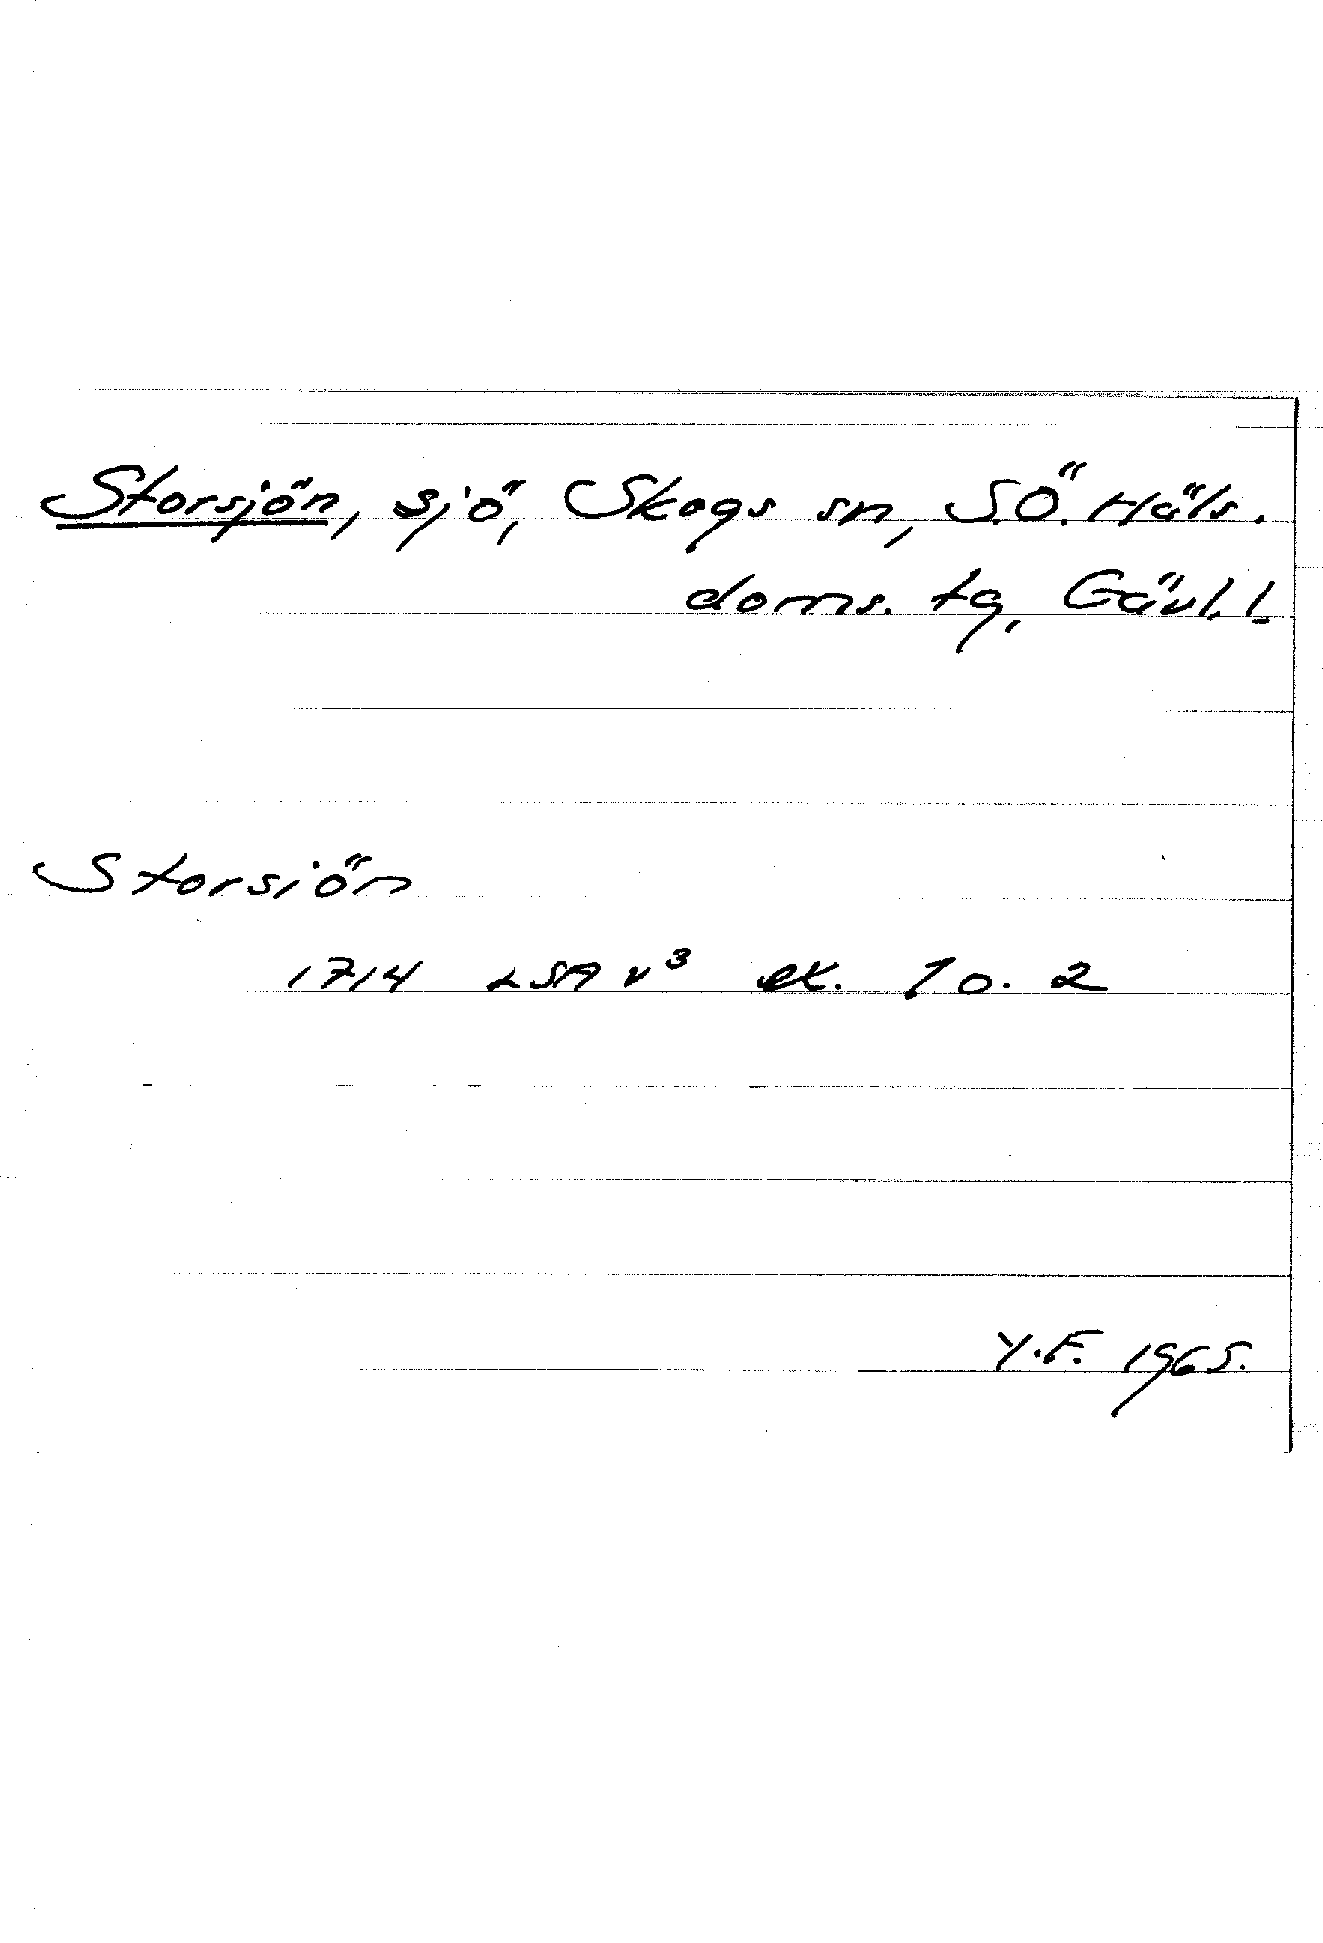 Storsjön, sjö, Skogs sn, S.Ö. Häls.
doms. tg, Gävl. l.
Storsiön
1714 LSA v³ ex. 1 o. 2
Y.F. 1965.